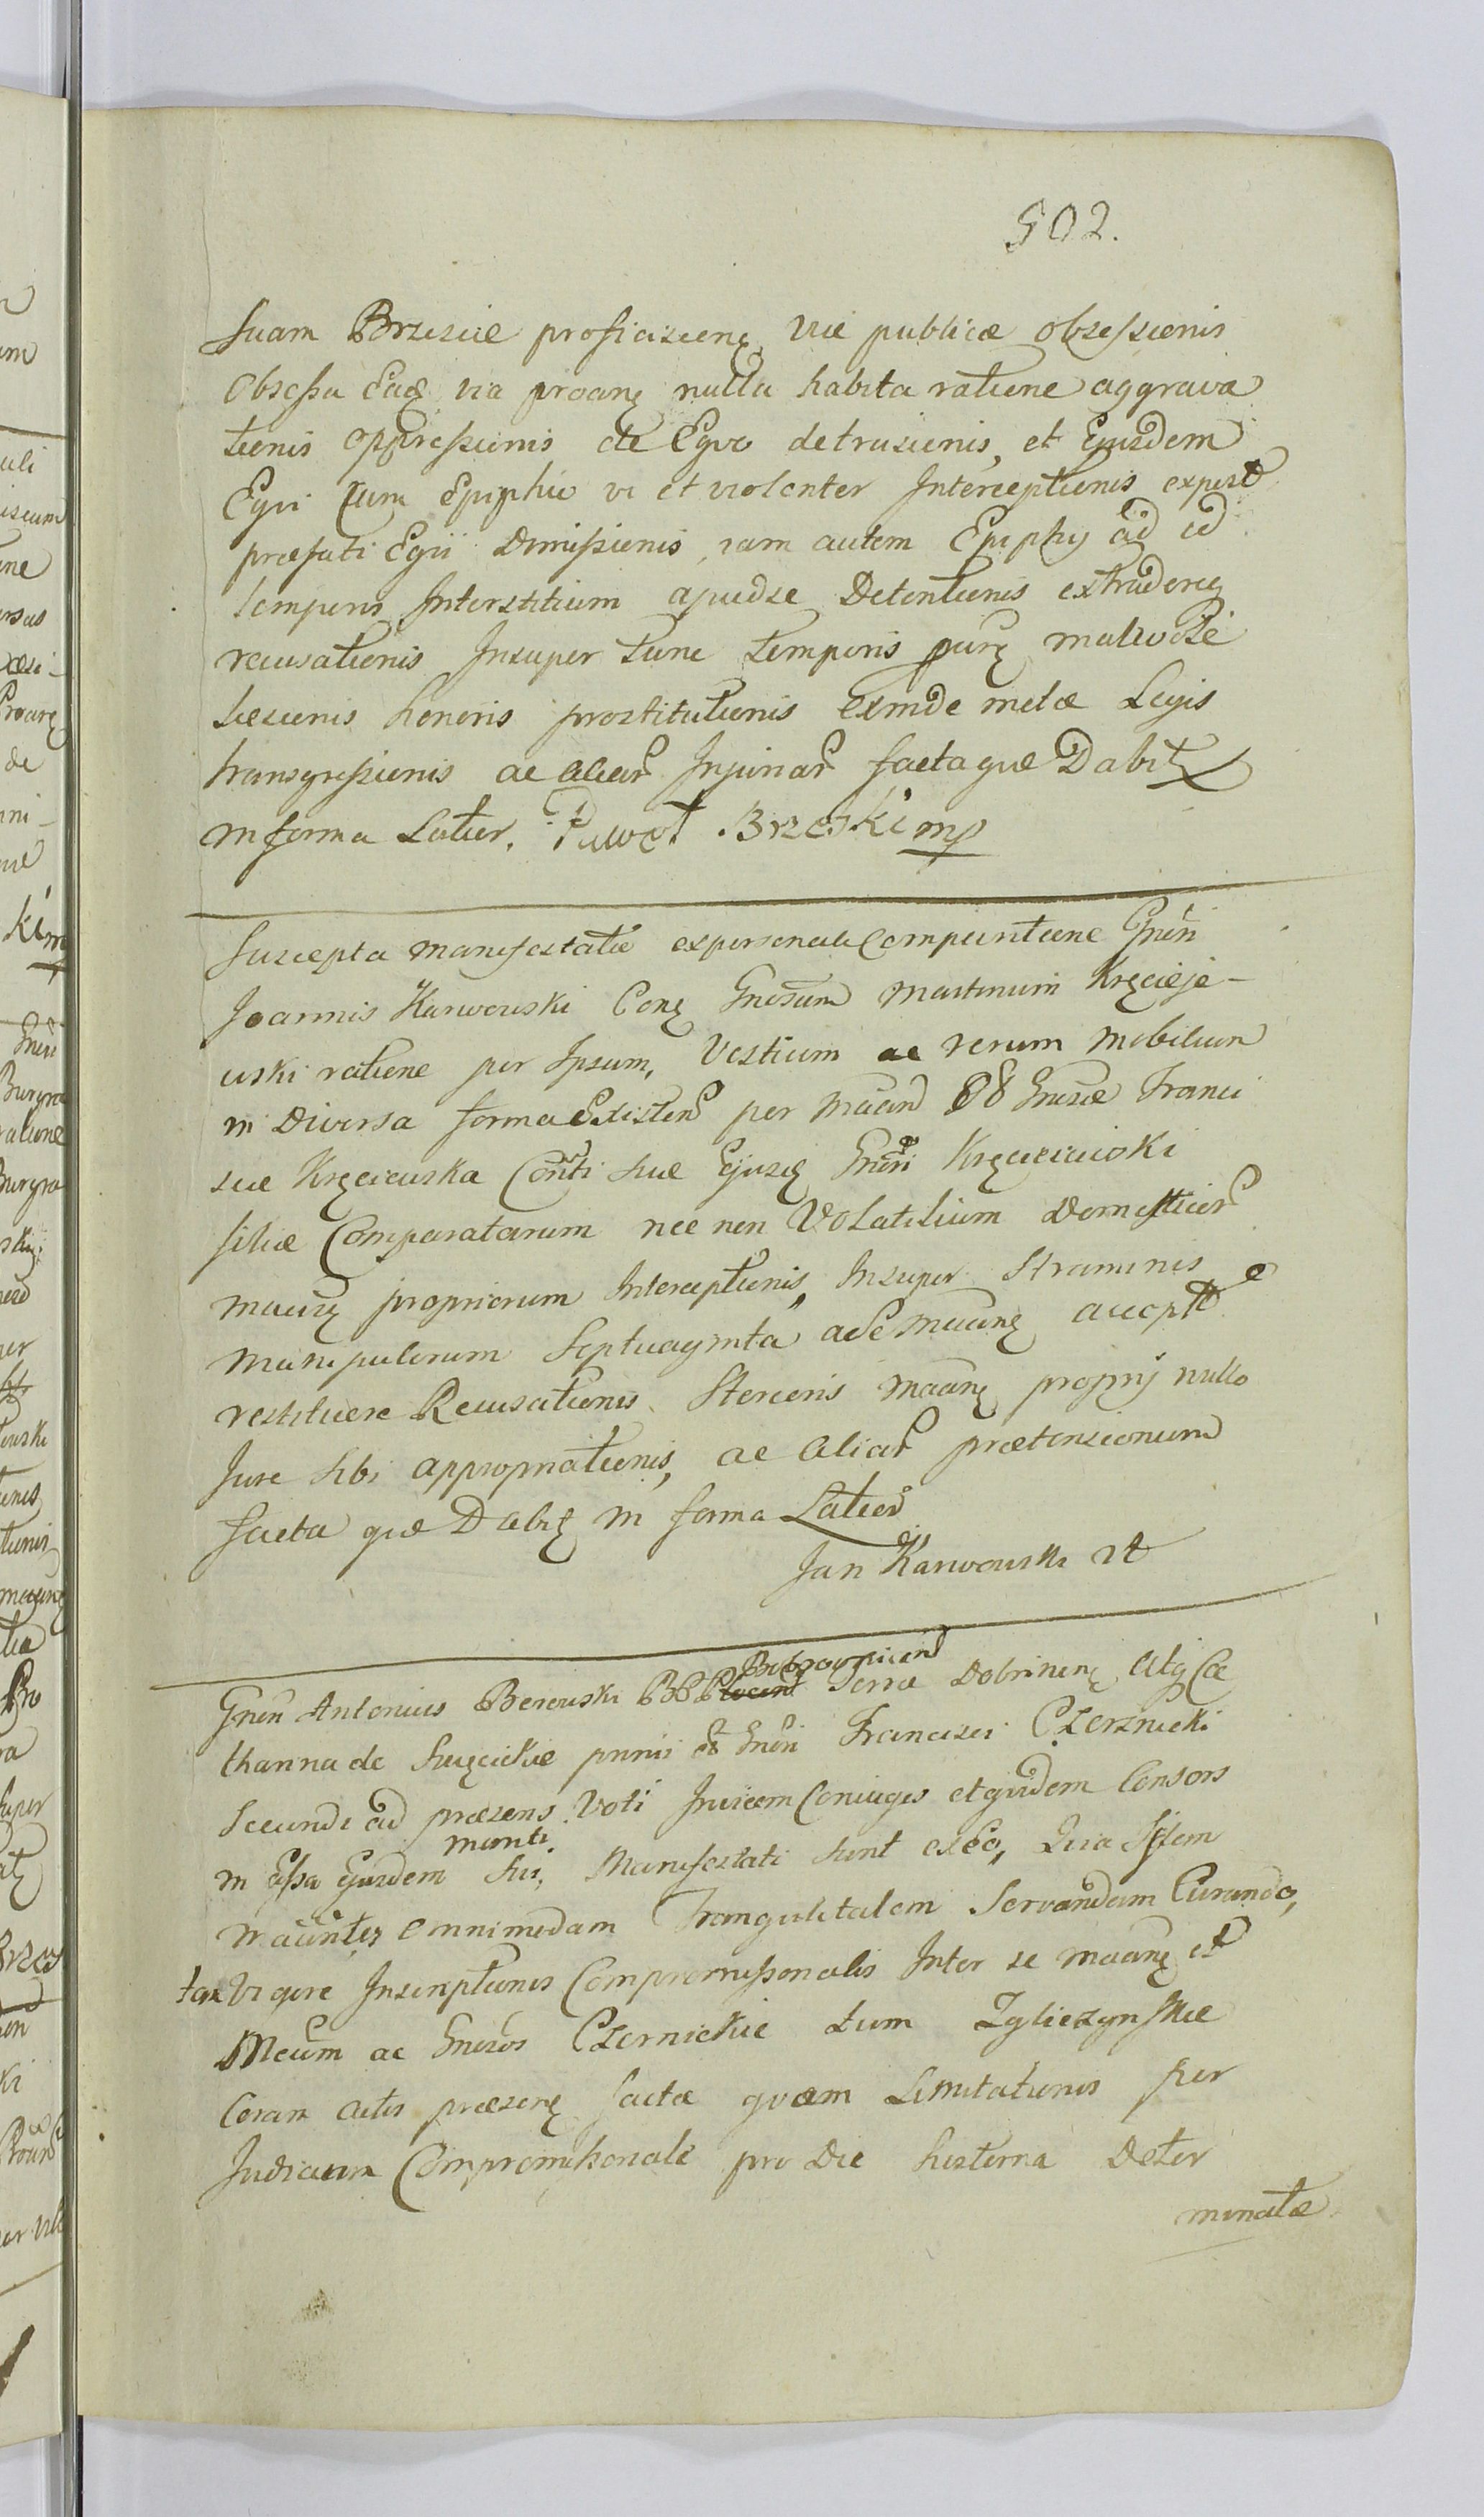 502.
suam Brzescie proficiscenę viæ publicæ obsessionis
obsessa Eadē via proanę nulla habita ratione aggrava
tionis oppressionis de Equo detrusionis, et Ejusdem
Equi cum Ephiphio vi et violenter Interceptionis expost
præfati Equi Dimissionis, iam autem Epiphij ad id
temporis Interstitium apud se Detentionis extradereq
recusationis Insuper tunc temporis
Læsionis honoris prostitutionis exinde metæ Legis
transgressionis ac aliar Injuriar facta quæ Dabit
in forma Latior. Paweł Brzeski mp
Suscepta manifestatio ex personali Comparitione Gnēri
Joannis Karwowski Conę Gnosum Martinum Kręcieje-
wski ratione per Ipsum, Vestium ac rerum mobilium
in Diversa forma Existen per Māan Gnosæ Franci
scæ Kręciewska Conti suæ Ejusdę Gnēri Kręcieiewski
filiæ Comparatarum nec non Volatilium Domesticor
maūrę propriorum Interceptionis, Insuper Straminis
manipulorum Septuaginta a Se māanę accept
restituere Recusationis. Stercoris māanę proprij nullo
Jure sibi appropriationis, ac aliar prætensionum
facta quæ Dabit in forma Latior
Jan Karwowski
Gnēri Antonius Berowski BBB Plocen Terræ Dobrinenę Atq Ca
Bobrownicen
tharina de Swęcickie primi et Gnēri Francisci Czernicki
Secundi ad præsens Voti Invicem Coniuges et quidem Consors
in Assa Ejusdem Sui, Manifestati sunt ex eo, Quia Ipsem
mariti
Māantes omnimodam Tranquilitatem Servandam Curando,
tax Vigore Inscriptionis Compromissionalis Inter se māanę et
Meum ac Gnosos Czernickie tum Zgliczynskie
Coram Actis præsenę factæ quam Limitationis per
Judicium Compromissionale pro Die hesterna Deter
minatæ